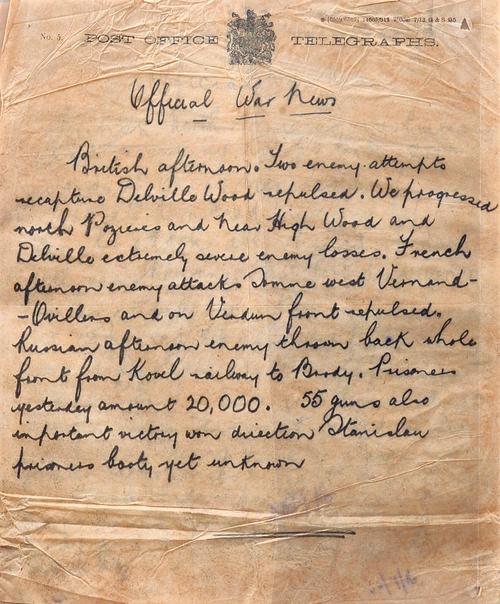 No. 5.
POST OFFICE TELEGRAPHS.
Official War News
British afternoon. Two enemy attempts
recapture Delville Wood repulsed. We progressed
north Pozieres and near High Wood and
Delville extremely severe enemy losses. French
afternoon enemy attacks Somme west Vermand-
-Ovillers and on Verdun front repulsed.
Russian afternoon enemy thrown back whole
front from Kovel railway to Brody. Prisoners
yesterday amount 20,000. 55 guns also
important victory won direction Stanislau
prisoners booty yet unknown